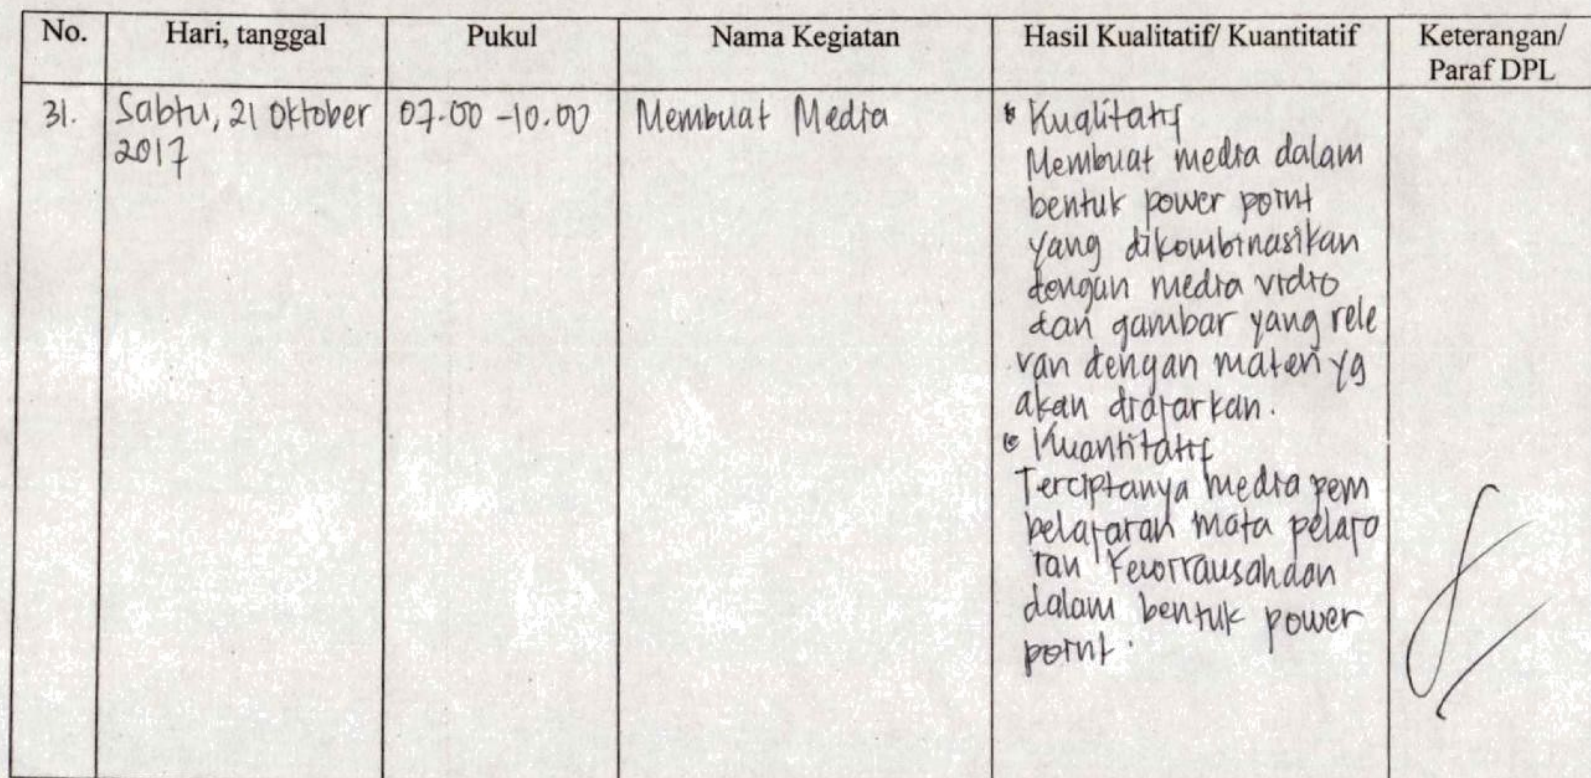 No. Hari, tanggal Pukul Nama Kegiatan Hasil Kualitatif/ Kuantitatif Keterangan/
Paraf DPL
31. Sabtu, 21 Oktober 07.00 - 10.00 Membuat Media • Kualitatif
2017
Membuat media dalam
bentuk power point
yang dikombinasikan
dengan media vidio
dan gambar yang rele
van dengan materi yg
akan diajarkan.
• Kuantitatif
Terciptanya media pem
belajaran mata pelaja
ran Kewirausahaan
dalam bentuk power
point.